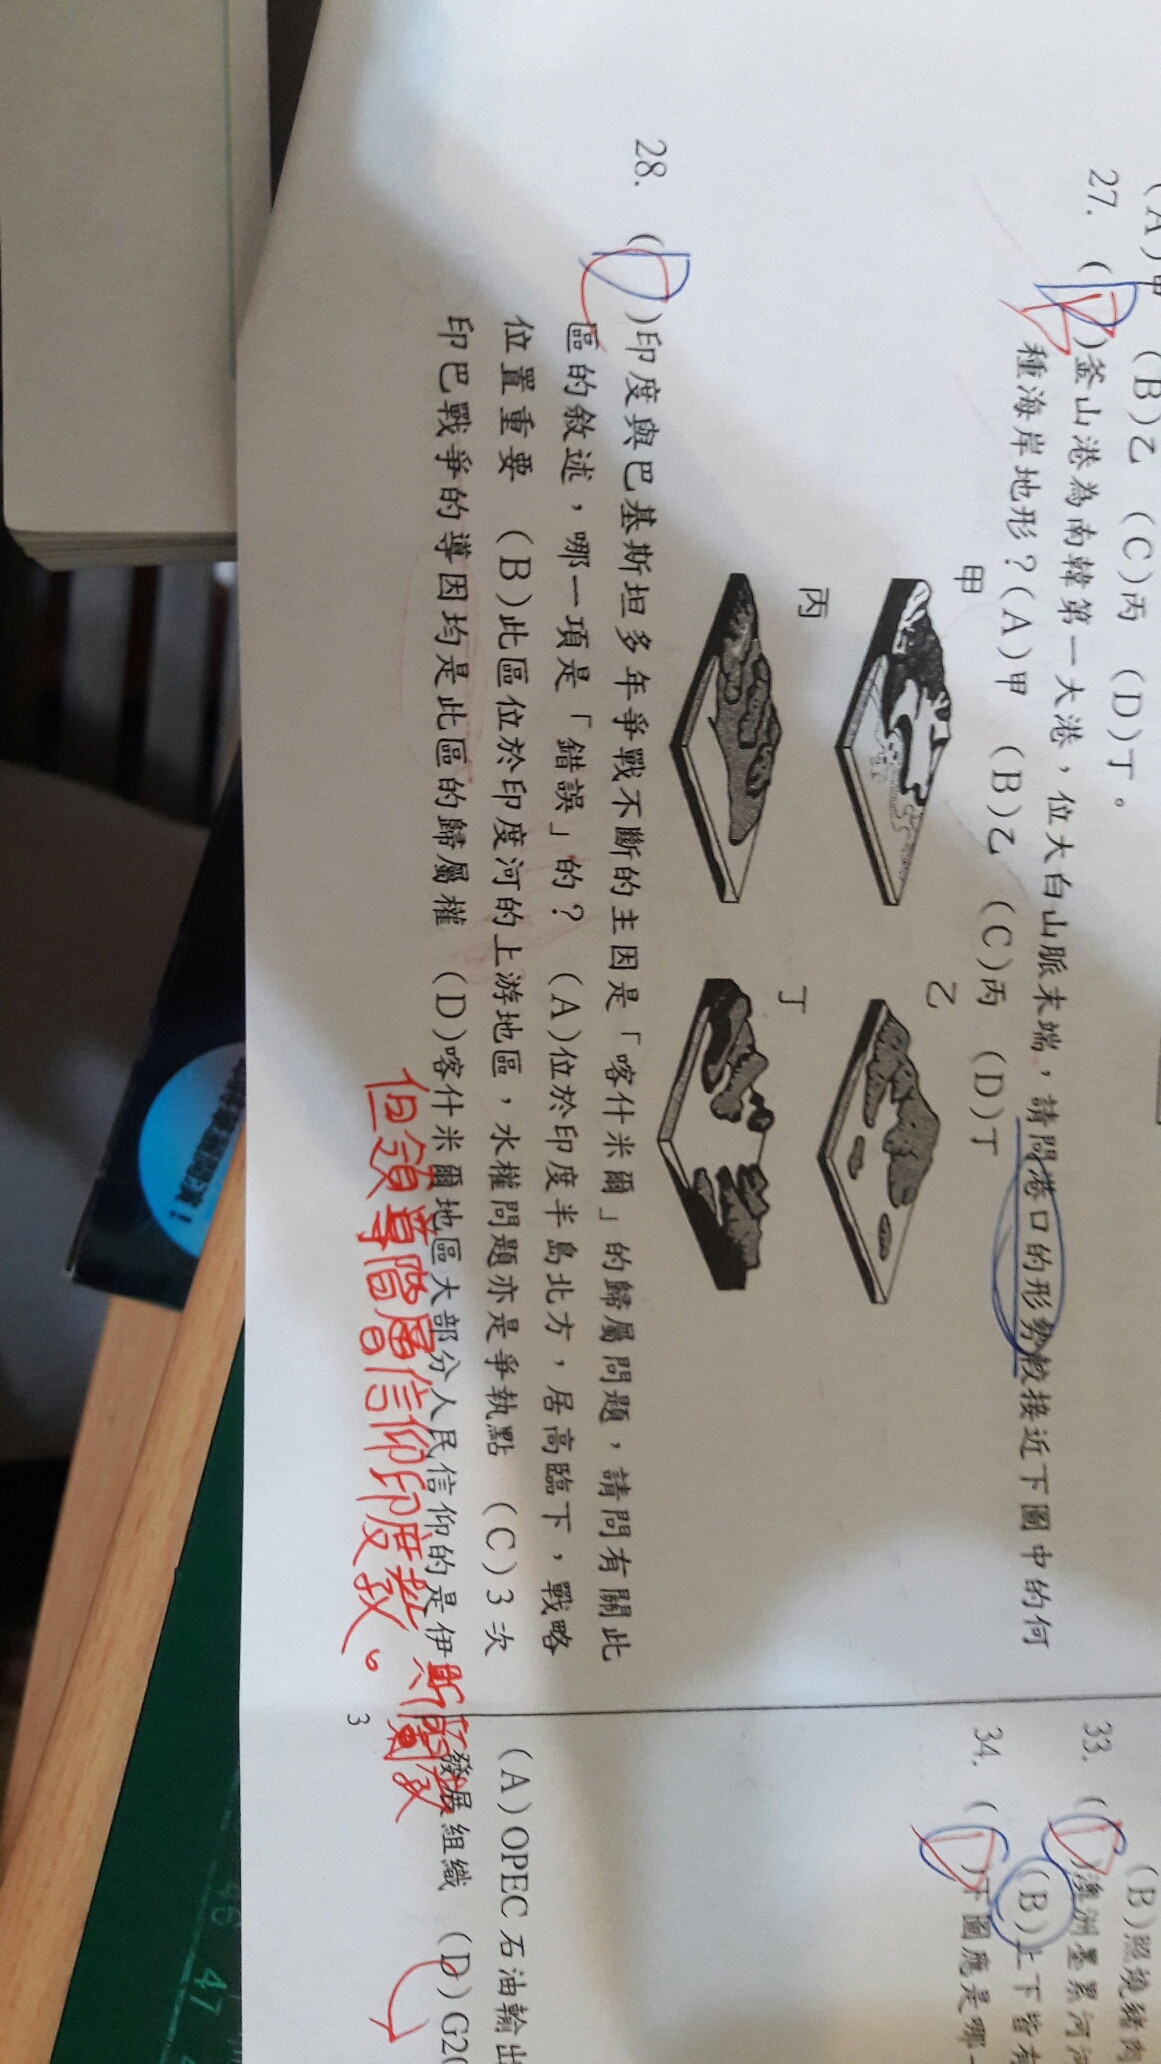 (A)甲 (B)乙 (C)丙 (D)丁。
27. ( )釜山港為南韓第一大港，位大白山脈末端，請問港口的形勢較接近下圖中的何
種海岸地形？(A)甲 (B)乙 (C)丙 (D)丁
甲 乙
丙 丁
28. ( )印度與巴基斯坦多年爭戰不斷的主因是「喀什米爾」的歸屬問題，請問有關此
區的敘述，哪一項是「錯誤」的？ (A)位於印度半島北方，居高臨下，戰略
位置重要 (B)此區位於印度河的上游地區，水權問題亦是爭執點 (C)3次
印巴戰爭的導因均是此區的歸屬權 (D)喀什米爾地區大部分人民信仰的是伊
斯蘭教
但領導階層信仰印度教。
3
(B)照燒豬肉
33. ( )澳洲墨累河
(B)上下皆有
34. ( )下圖應是哪一
(A)OPEC石油輸出
發展組織 (D)G20
46 47